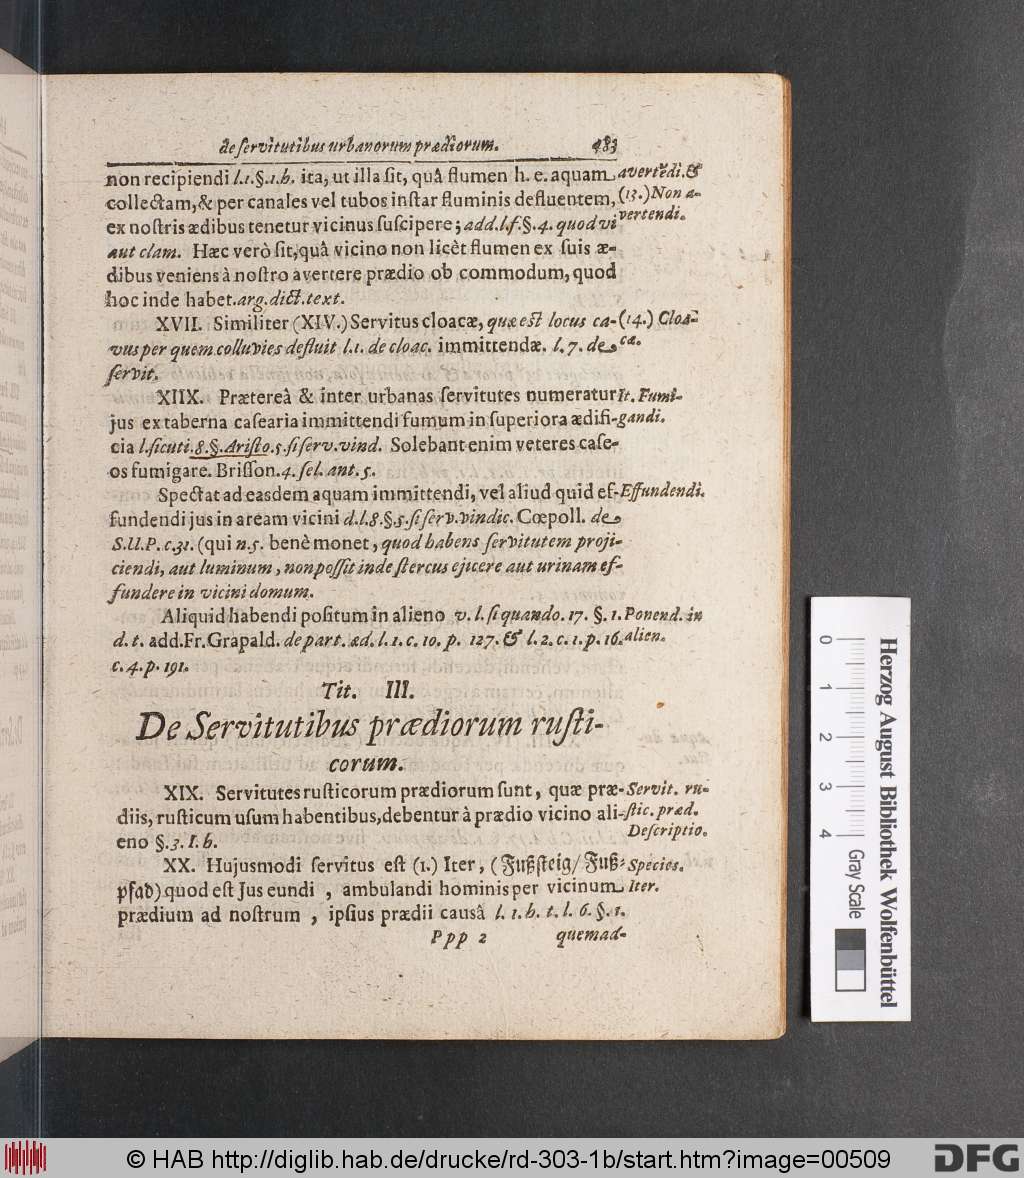 de ſervitutibus urbanorum prædiorum. 483
non recipiendi l.1.§.1.h. ita, ut illa ſit, quâ flumen h. e. aquam avertēdi. &
collectam, & per canales vel tubos inſtar fluminis defluentem, (13.) Non a-
ex noſtris ædibus tenetur vicinus ſuſcipere; add.l.f.§.4. quod vi vertendi.
aut clam. Hæc verò ſit, quâ vicino non licèt flumen ex ſuis æ-
dibus veniens à noſtro avertere prædio ob commodum, quod
hoc inde habet. arg. dict. text.
XVII. Similiter (XIV.) Servitus cloacæ, quæ eſt locus ca- (14.) Cloa-
vus per quem colluvies defluit l.1. de cloac. immittendæ. l. 7. de ca.
ſervit.
XIIX. Prætereà & inter urbanas ſervitutes numeratur It. Fumi-
jus ex taberna caſearia immittendi fumum in ſuperiora ædifi- gandi.
cia l. ſicuti. 8. §. Ariſto. 5. ſi ſerv. vind. Solebant enim veteres caſe-
os fumigare. Briſſon. 4. ſel. ant. 5.
Spectat ad easdem aquam immittendi, vel aliud quid ef- Effundendi.
fundendi jus in aream vicini d.l.8.§.5. ſi ſerv. vindic. Cœpoll. de
S.U.P. c.31. (qui n.5. benè monet, quod habens ſervitutem proji-
ciendi, aut luminum, non poſſit inde ſtercus ejicere aut urinam ef-
fundere in vicini domum.
Aliquid habendi poſitum in alieno v. l. ſi quando. 17. §. 1. Ponend. in
d. t. add. Fr. Grapald. de part. æd. l. 1. c. 10. p. 127. & l. 2. c. 1. p. 16. alien.
c. 4. p. 191.
Tit. III.
De Servitutibus prædiorum ruſti-
corum.
XIX. Servitutes ruſticorum prædiorum ſunt, quæ præ- Servit. ru-
diis, ruſticum uſum habentibus, debentur à prædio vicino ali- ſtic. præd.
eno §. 3. I. h. Deſcriptio.
XX. Hujusmodi ſervitus eſt (1.) Iter, (Fußſteig/ Fuß- Species.
pfad) quod eſt Jus eundi, ambulandi hominis per vicinum Iter.
prædium ad noſtrum, ipſius prædii causâ l. 1. h. t. l. 6. §. 1.
Ppp 2 quemad-
Herzog August Bibliothek Wolfenbüttel
0 1 2 3 4
Gray Scale
© HAB http://diglib.hab.de/drucke/rd-303-1b/start.htm?image=00509
DFG